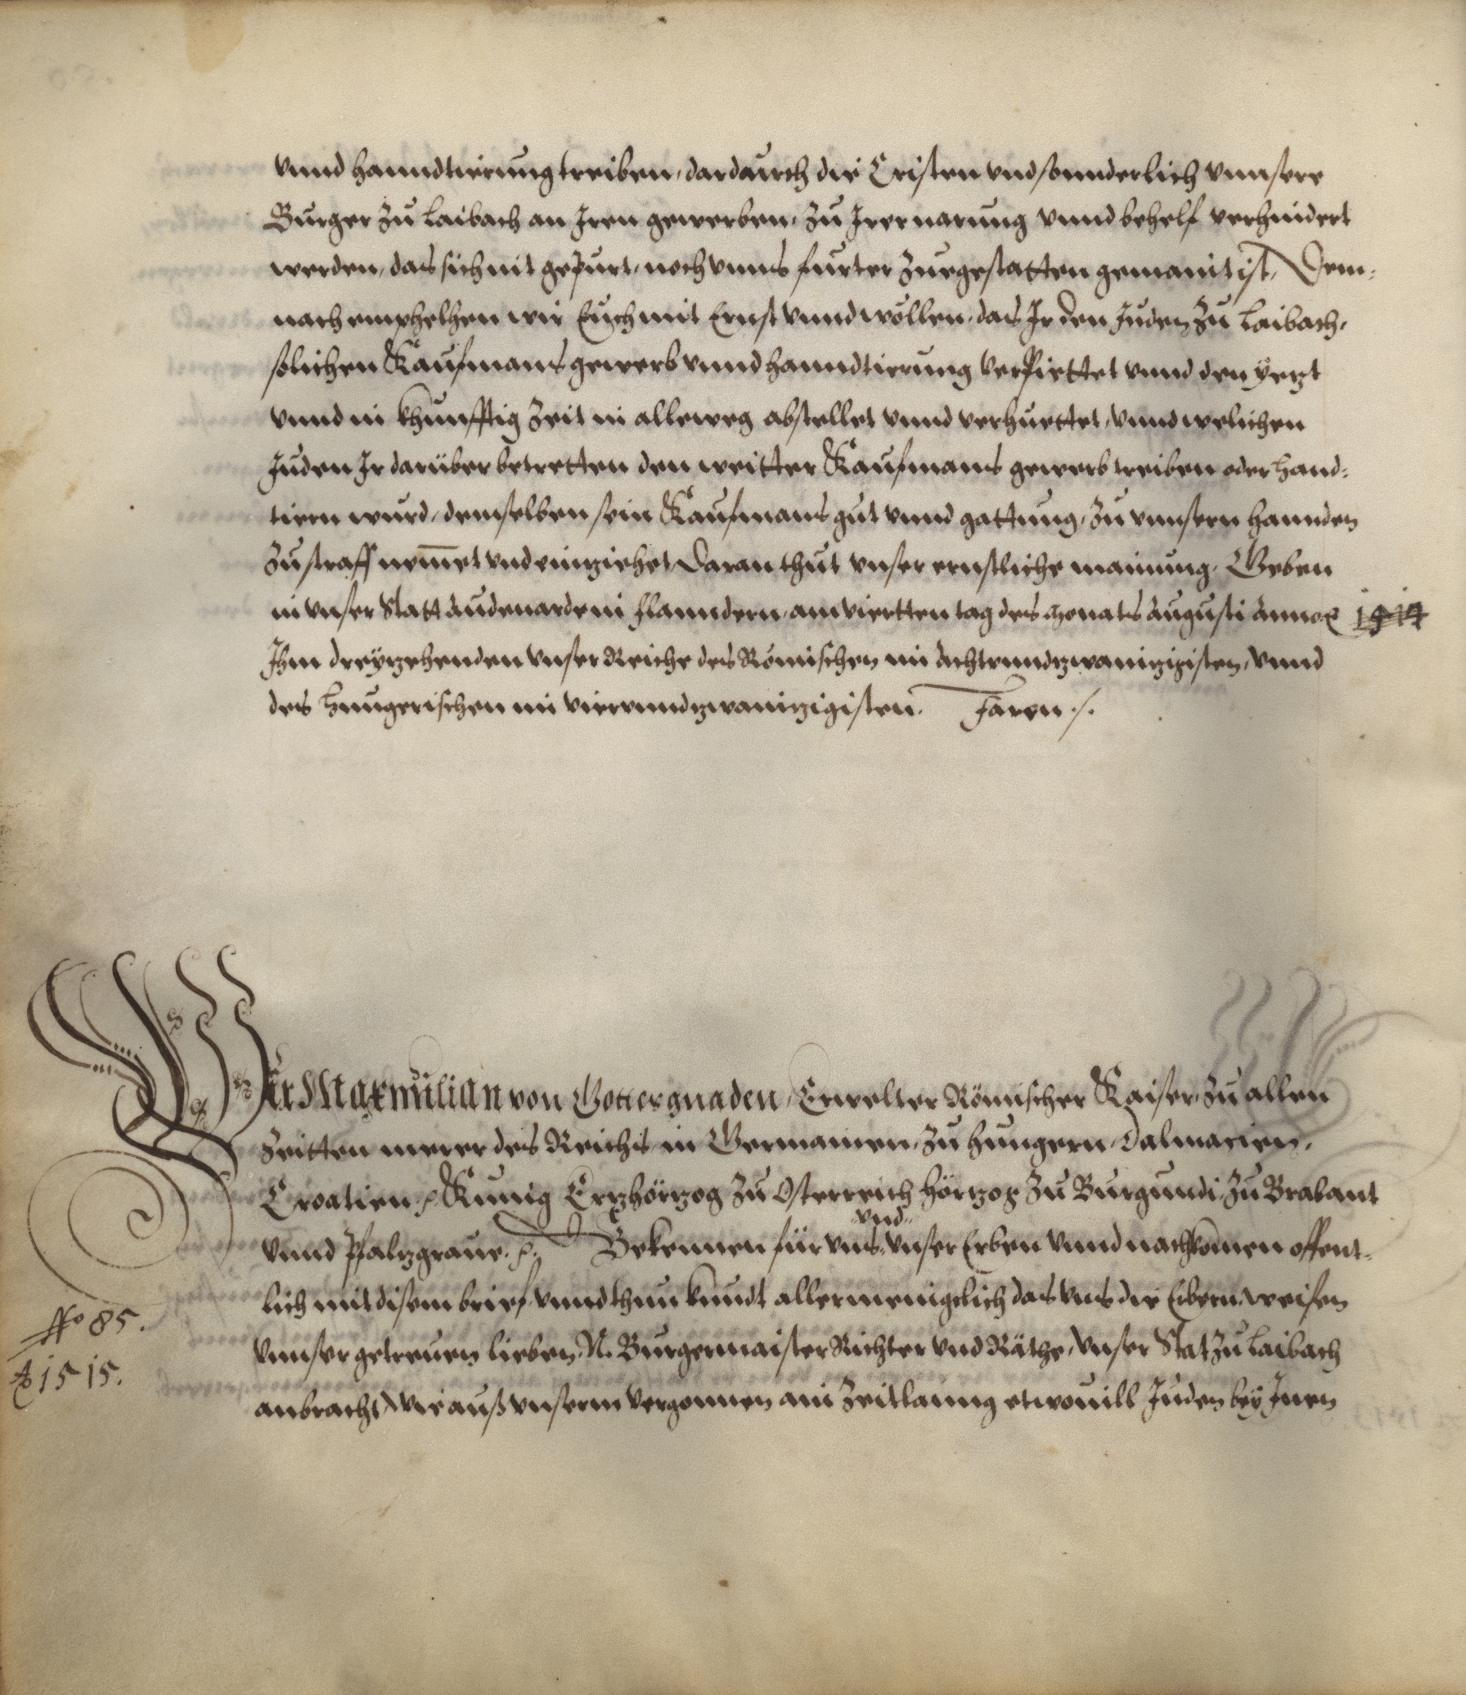 vnnd hanndtierung treiben, dardaurch die Cristen vnd sonnderlich vnnsere
Burger zu Laibach an Iren gewerben, zu Irer narung vnnd behelf verhindert
werden, das sich nit gepurt, noch vnns furter zuegestatten gemaint ist, Dem=
nach emphelhen wir Euch mit Ernst vnnd wöllen, das Ir den Juden zu Laibach,
solichen Kaufmans gewerb vnnd hanndtierung verpiettet vnnd den yetzt
vnnd in khunfftig Zeit in alleweg abstellet vnnd verhuettet, vnnd welichen
Juden Ir darüber betretten den weitter Kaufmans gewerb treiben oder hand=
tiern wurd, demselben sein Kaufmans gut vnnd gattung, zu vnnsern hannden
zu straff nemet vnd einziehet, Daran thut vnser ernstliche mainung, Geben
in vnser Statt Audenarde in Flanndern, am viertten tag des Monats Augusti Anno 1514
Ihm dreyzehenden vnser Reiche des Römischen im Achtvundzwaintzigisten, vnnd
des hungerischen im viervundzwaintzigisten.
Wir Maxmilian von Gottes gnaden, Erwelter Römischer Kaiser, zu allen
Zeitten merer des Reichs in Germanien, zu hungern, Dalmacien,
Croatien, Kunig Ertzhörtzog zu Osterreich hörtzog zu Burgundi, zu Brabant
vnnd Pfaltzgraue. Bekennen für vns, vnd vnser Erben vnnd nachkomen offent=
lich mit disem brief, vnnd thun kundt allermenigclich das vns die Erbern, weisen
vnnser getreuen lieben, N. Burgermaister Richter vnd Räthe, vnser Stat zu Laibach
anbracht, Wie auß vnserm vergonnen ain Zeitlanng etwouill Juden bey Inen
No 85.
Ao 1515.